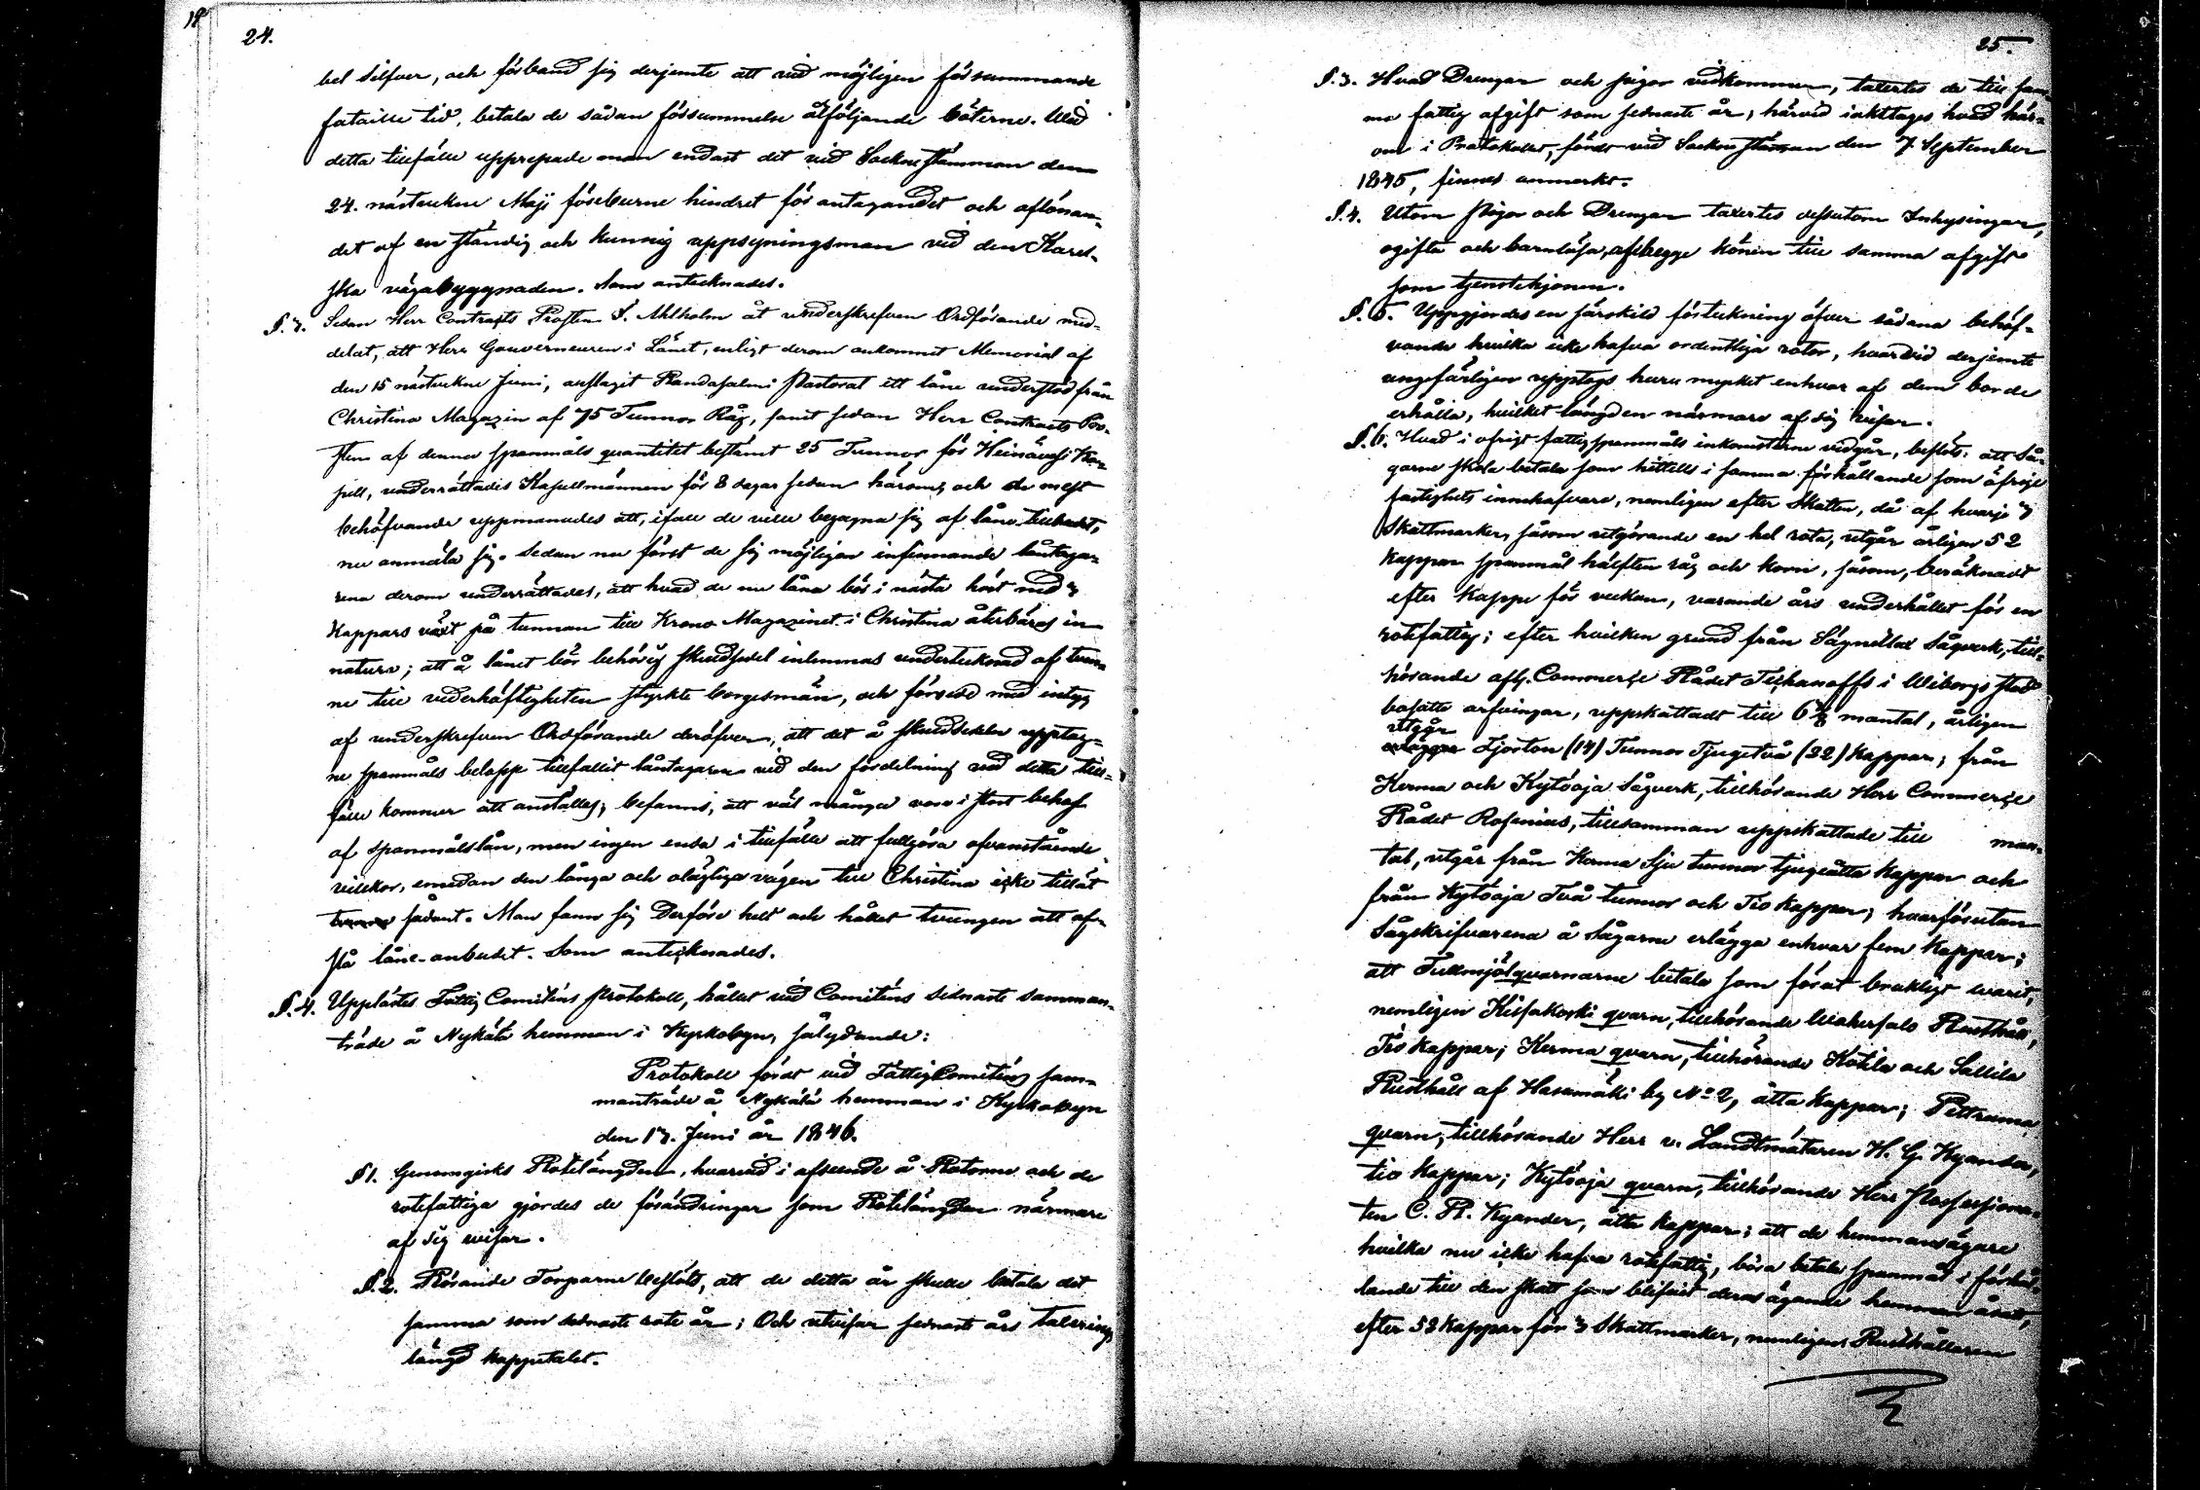 24.
bel Silfver, och förband sig derjemte att vid möjligen försummande
fataille tid, betala de sådan försummelse åtföljande böterne. Wid
detta tillfälle upprepade man endast det vid Sockne stämman den
24. nästvekne Maji föreburne hindret för antagandet och aflönan-
det af en ständig och kunnig uppsyningsman vid den Karel-
ska vägabyggnaden. Som antecknades.
§. 3. Sedan Herr Contracts Prosten S. Ahlholm åt underskrefven Ordförande med-
delat, att Herr Gouverneuren i Länet, enligt derom ankommit Memorial af
den 15 nästvekne Juni, anslagit Randasalmi Pastorat ett låne understöd från
Christina Magazin af 75 Tunnor Råg, samt sedan Herr Contracts Pro-
sten af denna spanmåls quantitet bestämt 25 Tunnor för Heinävesi Ka-
pell, underrättades Kapellmännen för 8 dagar sedan härom, och de mest
behöfvande uppmanades att, ifall de ville begagna sig af låne tillbudet,
nu anmäla sig. Sedan nu först de sig möjligen infinnande låntaga-
rena derom underrättades, att hvad de nu låna bör i nästa höst med 3
Kappars växt på tunnan till Krono Magazinet i Christina återbäras in
natura; att å lånet bör behörig skuldsedel inlemnas undertecknad af tven-
ne till vederhäftigheten styrkte borgesmän, och försedd med intyg
af underskrefven Ordförande deröfver, att det å skuldsedeln upptag-
ne spanmåls belopp tillfallit låntagaren vid den fördelning vid detta till-
fälle kommer att anställas; befanns, att väl många voro i stort behof
af spanmålslån, men ingen enda i tillfälle att fullgöra ofvanstående
villkor, emedan den långa och olägliga vägen till Christina icke tillät
sådant. Man fann sig Derföre helt och hållet tvungen att af-
stå låne-anbudet. Som antecknades.
§. 4. Upplästes Fattig Comiténs protokoll, hållet vid Comiténs sednaste samman-
träde å Nykälä hemman i Kyrkobyn, sålydande:
Protokoll fördt vid Fattig Comiténs sam-
manträde å Nykälä hemman i Kyrkobyn
den 13. Juni år 1846.
§ 1. Genomgicks Rotelängden, hvarvid i afseende å Rotorne och de
rotefattiga gjordes de förändringar som Rotelängden närmare
af sig visar.
§. 2. Rörande Torparne beslöts, att de detta år skulle betala det
samma som sednaste rote år; Och utvisar sednaste års Taxerings
längd kappetalet.
25.
§. 3. Hvad Drengar och pigor vidkommer, taxertes de till sam-
ma fattig afgift som sednaste år; härvid iakttages hvad här-
om i Protokollet, fördt vid Sockne stämman den 7 September
1845, finnes anmerkt.
§. 4. Utom Pigor och Drengar taxertes dessutom Inhysingar,
ogifta och barnlösa, af begge könen till samma afgift
som tjenstehjonen.
§. 5. Uppgjordes en särskild förteckning öfver sådana behöf-
vande hvilka icke hafva ordentliga rotor, hvarvid derjemte
ungefärligen upptogs huru mycket enhvar af dem borde
erhålla, hvilket längden närmare af sig visar.
§. 6. Hvad i öfrigt fattig spanmåls inkomsterne vidgår, beslöts: att Så-
garne skola betala som hittills i samma förhållande som öfrige
fastighets innehafvare, nemligen efter Skatten, då af hvarje 3
Skattmarker, såsom utgörande en hel rota, utgår årligen 52
Kappar spanmål hälften råg och korn, såsom, beräknadt
efter Kappe för veckan, varande års underhållet för en
rotefattig; efter hvilken grund från Sågnellet Sågverk, till-
hörande afl. Commerçe Rådet Tichanoffs i Wiborgs stad
bosatte arfvingar, uppskattadt till 6⅔ mantal, årligen
utgår
Fjorton (14) Tunnor Tjugetvå (22) Kappar; från
Kerma och Kytöoja Sågverk, tillhörande Herr Commerçe
Rådet Rosenius, tillsamman uppskattade till man-
tal, utgår från Kerma Sju tunnor tjugeåtta Kappar och
från Kytöoja Två tunnor och Tio kappar; hvarförutan
Sågskrifvarena å Sågarne erlägga enhvar fem Kappar;
att Tullmjölqvarnarne betala som förut brukligt warit,
nemligen Kissakoski qvarn, tillhörande Wakersalo Rusthåll,
Tio kappar; Kerma qvarn, tillhörande Kotila och Sallila
Rusthåll af Hasumäki by N:o 2, åtta Kappar; Pettruma
qvarn, tillhörande Herr v. Landtmätaren H. G. Kyander,
tio kappar; Kytöoja qvarn, tillhörande Herr Possessiona-
ten C. R. Kyander, åtta kappar; att de hemmansägare
hvilka nu icke hafva rotefattig, böra betala spanmål i förhål-
lande till den skatt som blifvit deras ägande hemman åsatt,
efter 52 Kappar för 3 Skattmarker, nemligen Rusthållaren